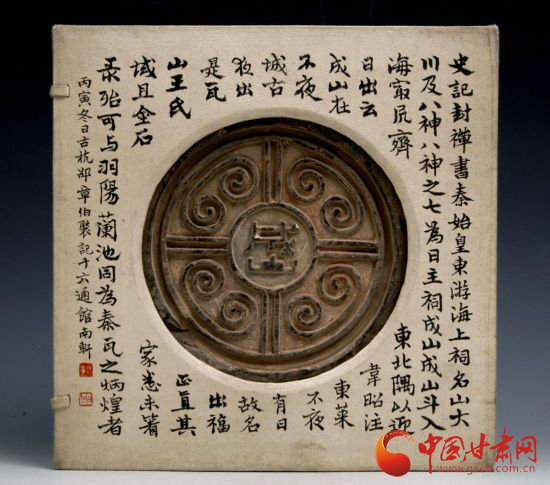 史記封禪書秦始皇東游海上祠名山大
川及八神八神之七為日主祠成山成山斗入
海最居齊東北隅以迎
日出云韋昭注
成山在東萊
不夜不夜
城古有日
夜出故名
是瓦出福
山王氏正直其
域且金石家悉未箸
录殆可与羽陽蘭池同為秦瓦之炳煌者
丙寅冬日古杭邵章伯褧記于六通館南軒
成山
中国甘肃网